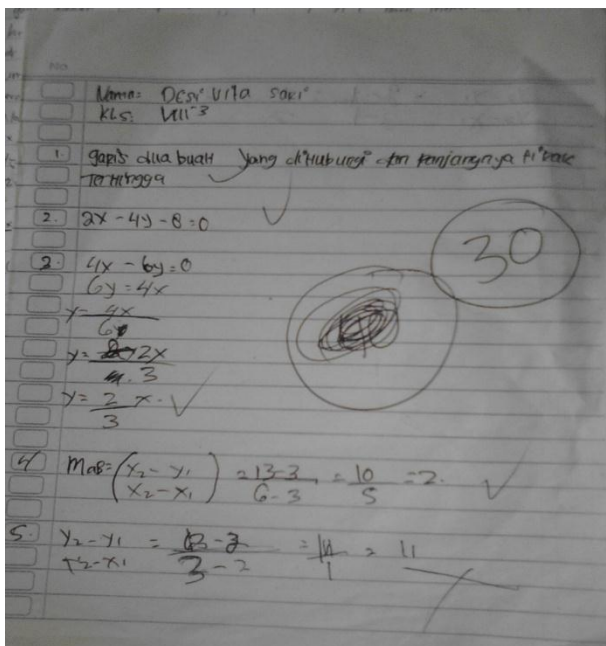 No
Nama: Desi Vita Sari
Kls: VIII-3
1. garis dua buah yang diHubungi dan panjangnya
Terhingga
2. 2x - 4y - 8 = 0
3. 4x - 6y = 0
6y = 4x
y = 4x / 6
y = 2x / 3
y = 2/3 x.
30
4 MaB = (x₂ - y₁ / x₂ - x₁) = 13-3 / 6-3 = 10/5 = 2.
5. y₂ - y₁ / x₂ - x₁ = 13-2 / 3-2 = 11/1 = 11